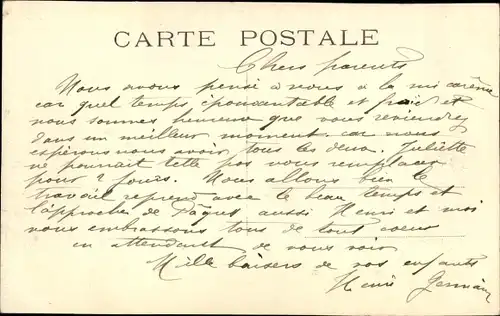 CARTE POSTALE
Chers parents
Nous avons pensé à vous à la mi carême
car quel temps épouvantable et froid et
nous sommes heureux que vous reviendrez
dans un meilleur moment. car nous
espérons vous avoir tous les deux. Juliette
ne pourrait telle pas vous remplacer
pour 2 jours. Nous allons bien le
travail reprend avec le beau temps et
l'approche de Pâques aussi Henri et moi
vous embrassons tous de tout coeur
en attendant de vous voir
Mille baisers de vos enfants
Henri Germaine